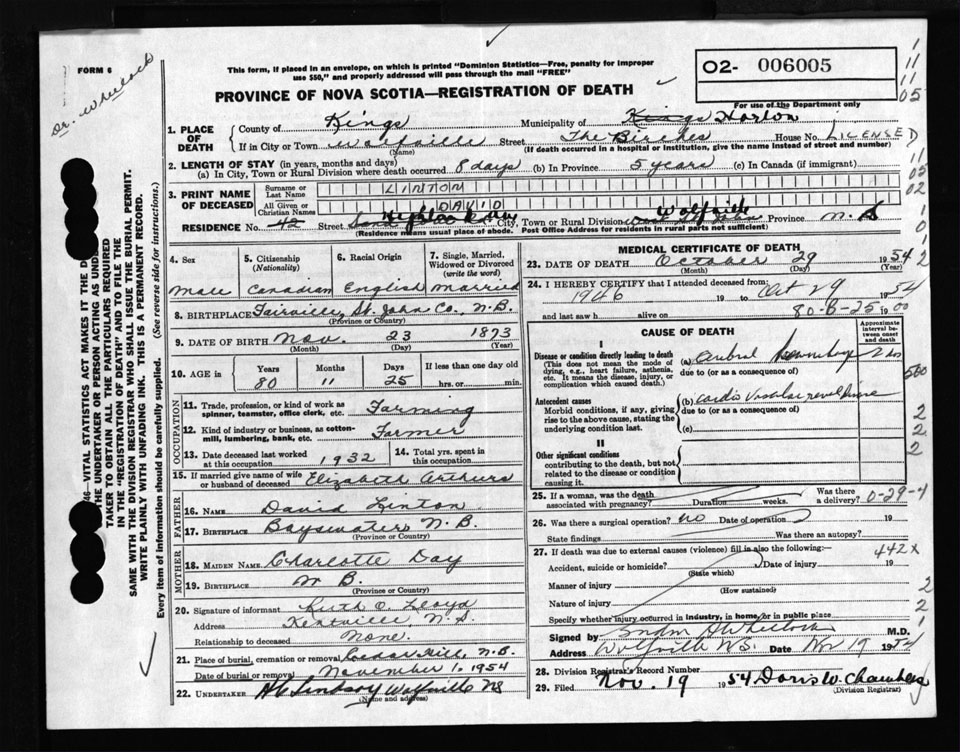 FORM 6
Dr. Wheelock
This form, if placed in an envelope, on which is printed "Dominion Statistics—Free, penalty for improper
use $50," and properly addressed will pass through the mail "FREE"
PROVINCE OF NOVA SCOTIA—REGISTRATION OF DEATH
O2- 006005
For use of the Department only
1. PLACE OF DEATH
County of Kings Municipality of Kings Horton
If in City or Town Wolfville Street The Birches House No. LICENSED
(Name) (If death occurred in a hospital or institution, give the name instead of street and number)
2. LENGTH OF STAY (in years, months and days)
(a) In City, Town or Rural Division where death occurred 8 days (b) In Province 5 years (c) In Canada (if immigrant)
3. PRINT NAME OF DECEASED
Surname or Last Name LINTON
All Given or Christian Names DAVID
RESIDENCE No. 42 Street City, Town or Rural Division Wolfville Province N.S
(Residence means usual place of abode. Post Office Address for residents in rural parts not sufficient)
4. Sex
Male
5. Citizenship (Nationality)
Canadian
6. Racial Origin
English
7. Single, Married, Widowed or Divorced (write the word)
Married
8. BIRTHPLACE Fairville, St. John Co., N.B.
(Province or Country)
9. DATE OF BIRTH Nov. 23 1873
(Month) (Day) (Year)
10. AGE in Years Months Days If less than one day old
80 11 25 hrs. or min.
OCCUPATION
11. Trade, profession, or kind of work as spinner, teamster, office clerk, etc. Farming
12. Kind of industry or business, as cotton-mill, lumbering, bank, etc. Farmer
13. Date deceased last worked at this occupation 1932
14. Total yrs. spent in this occupation
15. If married give name of wife or husband of deceased Elizabeth Arthurs
FATHER
16. NAME David Linton
17. BIRTHPLACE Bayswater N.B.
(Province or Country)
MOTHER
18. MAIDEN NAME Charlotte Day
19. BIRTHPLACE N B.
(Province or Country)
20. Signature of informant Ruth O. Lloyd
Address Kentville, N.S.
Relationship to deceased None.
21. Place of burial, cremation or removal Cedar Hill, N.B.
Date of burial or removal November 1, 1954
22. UNDERTAKER H C Lindsay Wolfville NS
(Name and address)
MEDICAL CERTIFICATE OF DEATH
23. DATE OF DEATH October 29 1954
(Month) (Day) (Year)
24. I HEREBY CERTIFY that I attended deceased from:
1946 19 to Oct 29 1954
and last saw h alive on 19
80-8-25-00
CAUSE OF DEATH
Approximate interval between onset and death
I
Disease or condition directly leading to death
(This does not mean the mode of dying, e.g., heart failure, asthenia, etc. It means the disease, injury, or complication which caused death.)
(a) hemorrhage
due to (or as a consequence of)
Antecedent causes
Morbid conditions, if any, giving rise to the above cause, stating the underlying condition last.
(b) Cardio Vascular renal disease
due to (or as a consequence of)
(c)
II
Other significant conditions
contributing to the death, but not related to the disease or condition causing it.
25. If a woman, was the death associated with pregnancy? Duration weeks. Was there a delivery? 0-29-4
26. Was there a surgical operation? no Date of operation 19
State findings Was there an autopsy?
27. If death was due to external causes (violence) fill in also the following:— 442X
Accident, suicide or homicide? Date of injury 19
(State which)
Manner of injury
(How sustained)
Nature of injury
Specify whether injury occurred in industry, in home, or in public place
Signed by M.D.
Address Wolfville N.S. Date Nov 19 1954
28. Division Registrar's Record Number
29. Filed Nov. 19 1954 Doris W. Chambers
(Division Registrar)
THE UNDERTAKER OR PERSON ACTING AS UND
TAKER TO OBTAIN ALL THE PARTICULARS REQUIRED
IN THE "REGISTRATION OF DEATH" AND TO FILE THE
SAME WITH THE DIVISION REGISTRAR WHO SHALL ISSUE THE BURIAL PERMIT.
WRITE PLAINLY WITH UNFADING INK. THIS IS A PERMANENT RECORD.
Every item of information should be carefully supplied. (See reverse side for instructions.)